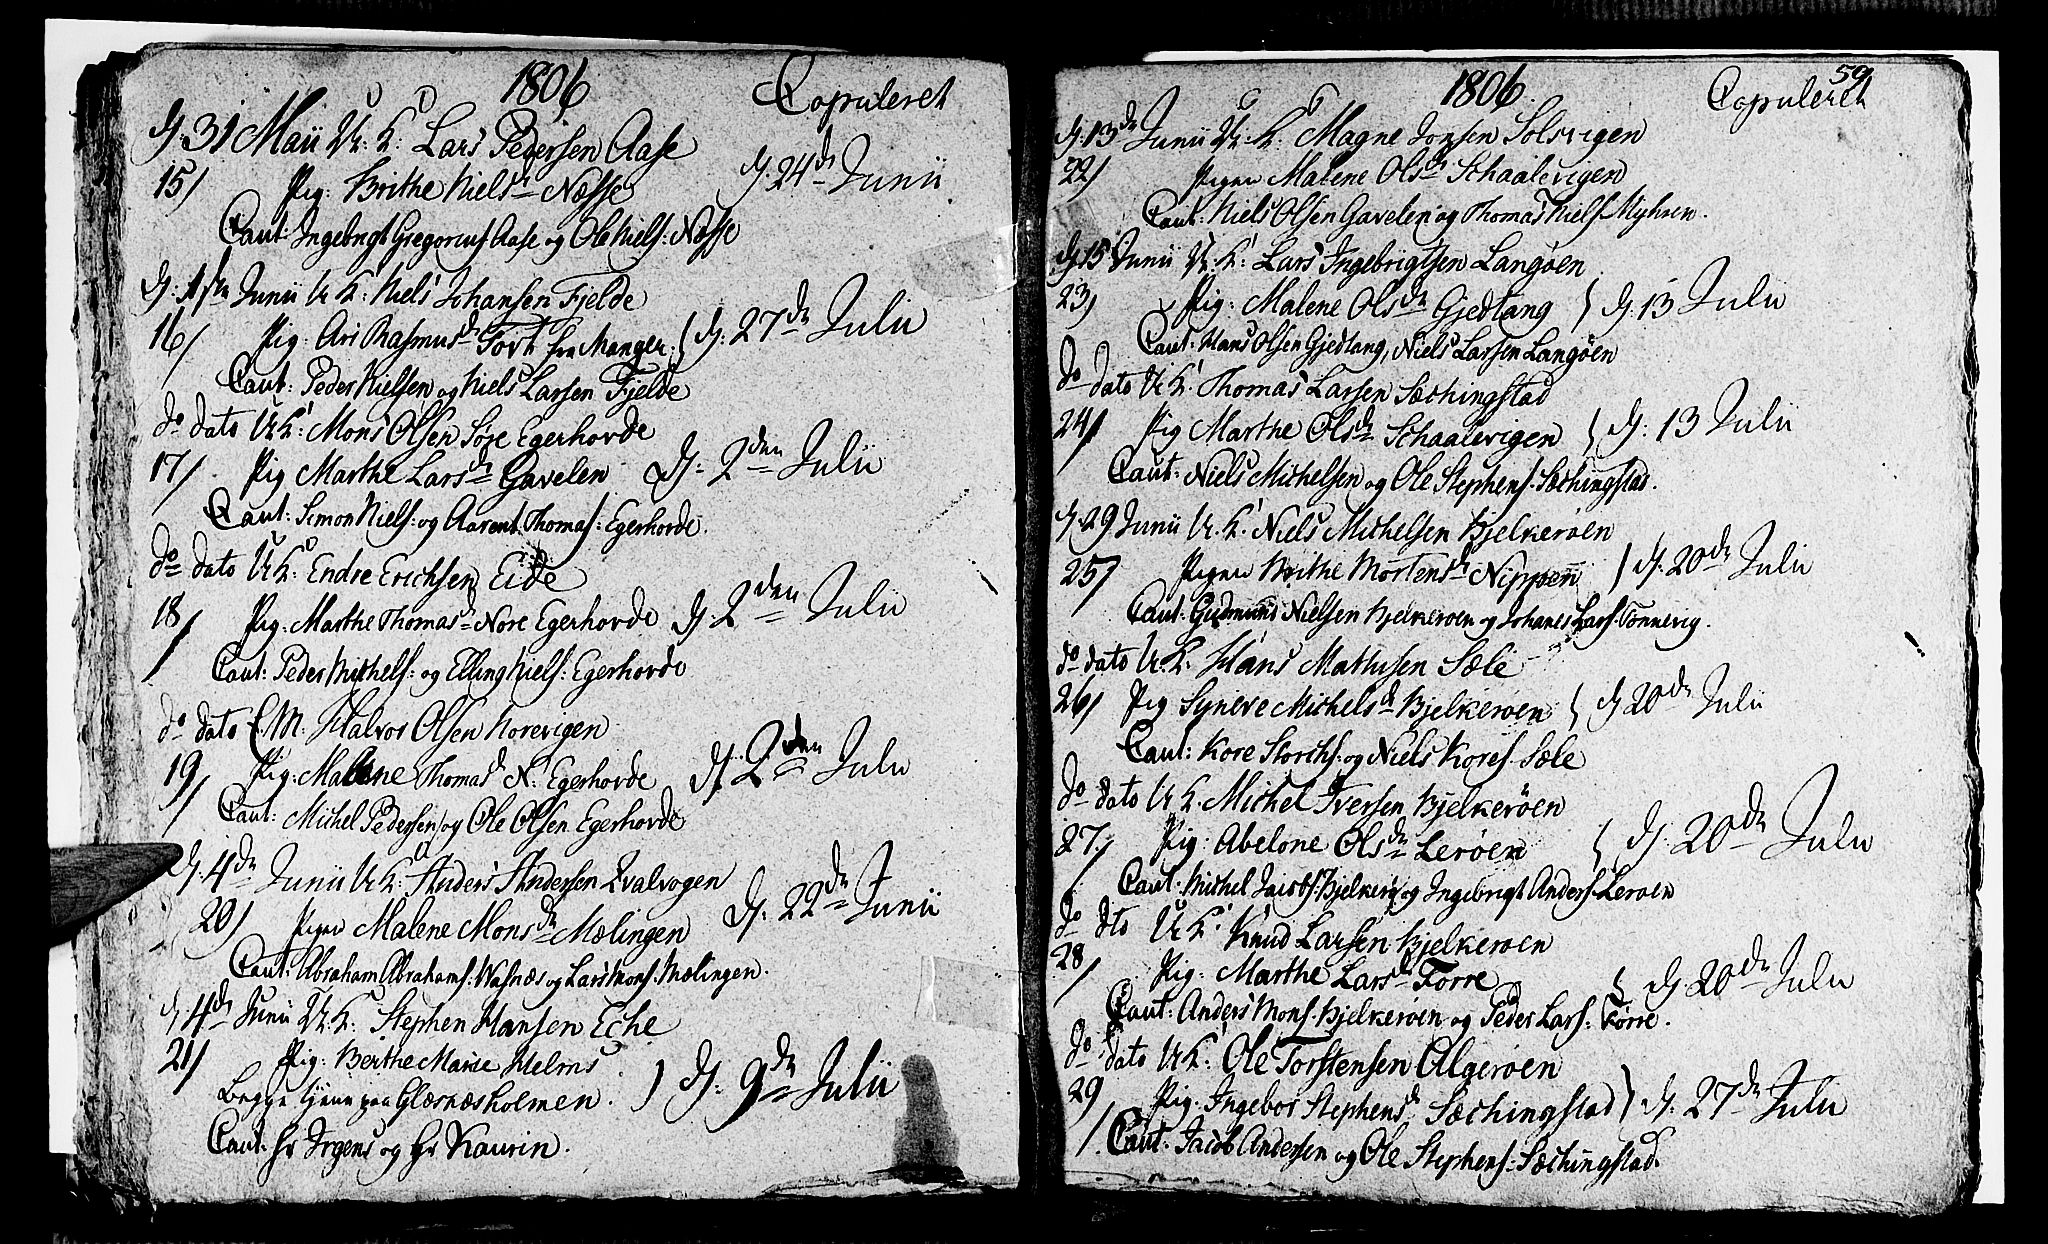 1806 Copuleret
d. 31 Maii U: K: Lars Pedersen Aase
15/ Pig: Brithe Niels d. Næsse d. 24de Junii
Caut: Ingebrigt Gregoriuss Aase og Ole Niels: Næsse
d: 1ste Junii U K: Niels Johansen Fjelde
16/ Pig: Ari Rasmusd. Toft fra Manger } d: 27de Julii
Caut: Peder Nielsen og Niels Larsen Fjelde
do dato U K: Mons Olsen Søre Egerhovde
17/ Pig Marthe Larsd. Gavelen d: 2den Julii
Caut: Simon Niels: og Aarent Thomas: Egerhovde.
do dato U K: Endre Erichsen Eide
18/ Pig. Marthe Thomasd. Nore Egerhovde d. 2den Julii
Caut: Peder Michels: og Elling Niels: Egerhovde
do dato E. M: Halvor Olsen Norevigen
19/ Pig: Malene Thomasd. N: Egerhovde d. 2den Julii
Caut: Michel Pedersen og Ole Olsen Egerhovde
d. 4de Junii U K: Anders Andersen Qvalvogen
20/ Pigen Malene Monsd. Mælingen d. 22de Junii
Caut: Abraham Abrahams: Wasnæs og Lars Mons: Mælingen.
d 4de Junii U. K: Stephen Hansen Eche
21/ Pig: Berthe Marie Helms
Begge tjene paa Glæsnæsholmen. } d: 9de Julii
Caut: Hr Irgens og Hr Kaurin.
59
1806. Copuleret
d. 13de Junii U. K: Magne Jonsen Solsvigen
22/ Pigen Malene Olsd. Schaalevigen
Caut: Niels Olsen Gavelen og Thomas Niels Myhren.
d. 15 Junii U: K: Lars Ingebrigtsen Langøen
23/ Pig: Malene Olsd. Gjedtang } d. 13 Julii
Caut: Hans Olsen Gjedtang, Niels Larsen Langøen
do dato U K: Thomas Larsen Sæchingstad
24/ Pig Marthe Olsd. Schaalevigen } d: 13 Julii
Caut: Niels Michelsen og Ole Stephens. Sæchingstad.
d. 29 Junii U. K: Niels Michelsen Bjelkerøen
25/ Pigen Brithe Mortensd. Nippen } d. 20de Julii
Caut: Gudmund Nielsen Bjelkerøen og Johanes Lars: Tønnevig.
do dato U. K. Hans Mathisen Sæle
26/ Pig Syneve Michelsd. Bjelkerøen } d 20de Julii
Caut: Kore Storchs: og Niels Kores. Sæle
do dato U K. Michel Iversen Bjelkerøen
27/ Pig: Abelone Olsd. Lerøen } d. 20de Julii
Caut: Michel Jacobs: Bjelkerø og Ingebrigt Anders: Lerøen
do dto U K: Knud Larsen Bjelkerøen
28/ Pig: Marthe Larsd. Førre } d 20de Julii
Caut: Anders Mons. Bjelkerøen og Peder Lars: Førre.
do dato U K: Ole Torstensen Algerøen
29/ Pig. Ingebor Stephensd. Sæchingstad } d. 27de Julii
Caut. Jacob Andersen og Ole Stephens: Sæchingstad.